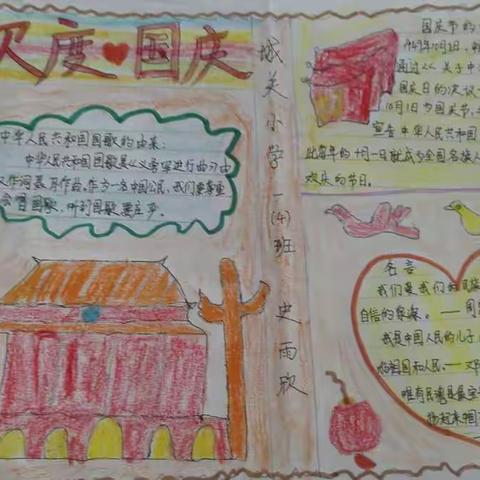 欢度国庆
中华人民共和国国歌的由来:
中华人民共和国国歌是《义勇军进行曲》由
作词聂耳作曲,作为一名中国公民,我们要尊重
会唱国歌,听到国歌要庄严。
城关小学一(4)班 史雨欣
国庆节的
1949年10月2日,
通过《关于中
国庆日的决议
10月1日为国庆节,
宣告中华人民共和国
此每年的十月一日就成为全国各族人
欢庆的节日。
名言
我们爱我们的民族
自信的泉源。——周
我是中国人民的儿子
的祖国和人民。——邓
唯有民魂是最宝
扬起来,中国